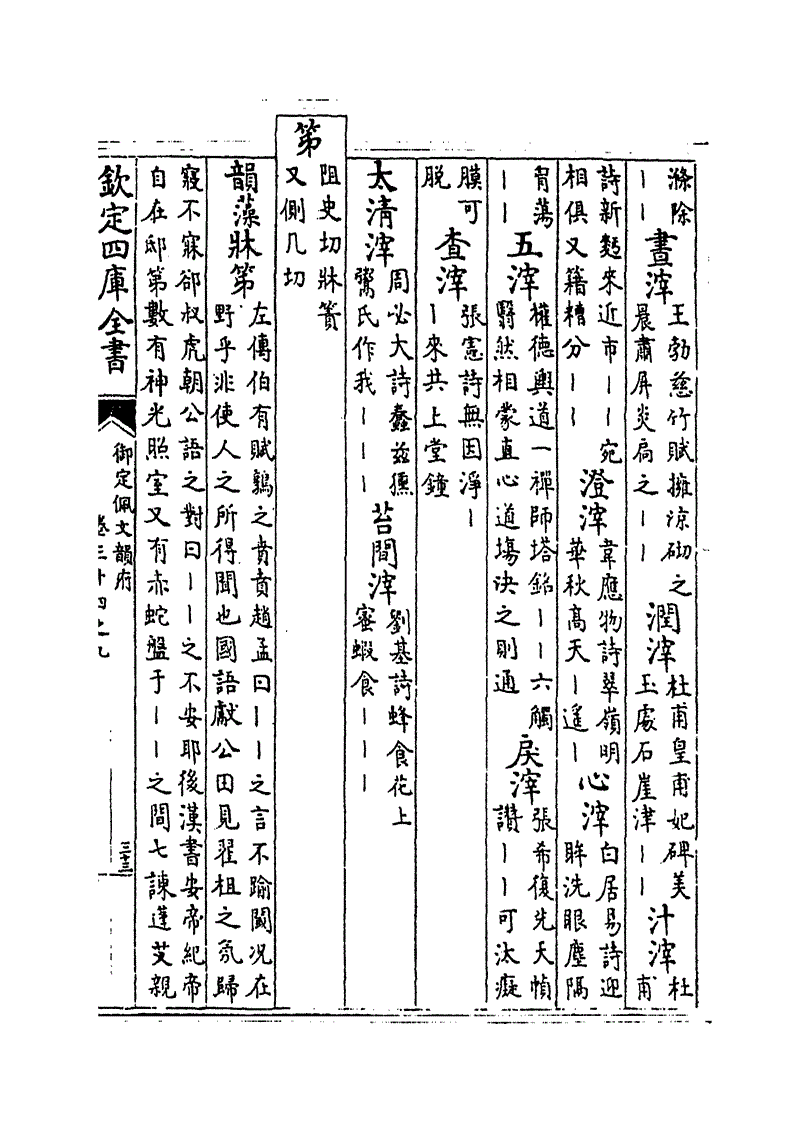 滌除丨丨 晝滓 王勃慈竹賦擁涼砌之晨肅屏炎扃之丨丨 潤滓 杜甫皇甫妃碑美玉處石崖津丨丨 汁滓 杜甫
詩新麴來近市丨丨宛相俱又籍糟分丨丨 澄滓 韋應物詩翠嶺明華秋高天丨遙丨 心滓 白居易詩迎眸洗眼塵隔
胷蕩丨丨 五滓 權德輿道一禪師塔銘丨丨六觸翳然相蒙直心道塲決之則通 戾滓 張希復先天幀讚丨丨可汰癡
膜可脱 查滓 張憲詩無因淨丨丨來共上堂鐘
太清滓 周必大詩蠢兹獯鬻氏作我丨丨丨 苔間滓 劉基詩蜂食花上蜜蝦食丨丨丨
笫 阻史切牀簀又側几切
韻藻牀笫 左傳伯有賦鶉之賁賁趙孟曰丨丨之言不踰閾况在野乎非使人之所得聞也國語獻公田見翟柤之氛歸
寢不寐郤叔虎朝公語之對曰丨丨之不安耶後漢書安帝紀帝自在邸第數有神光照室又有赤蛇盤于丨丨之間七諫蓬艾親
欽定四庫全書
御定佩文韻府
卷三十四之九
三十三